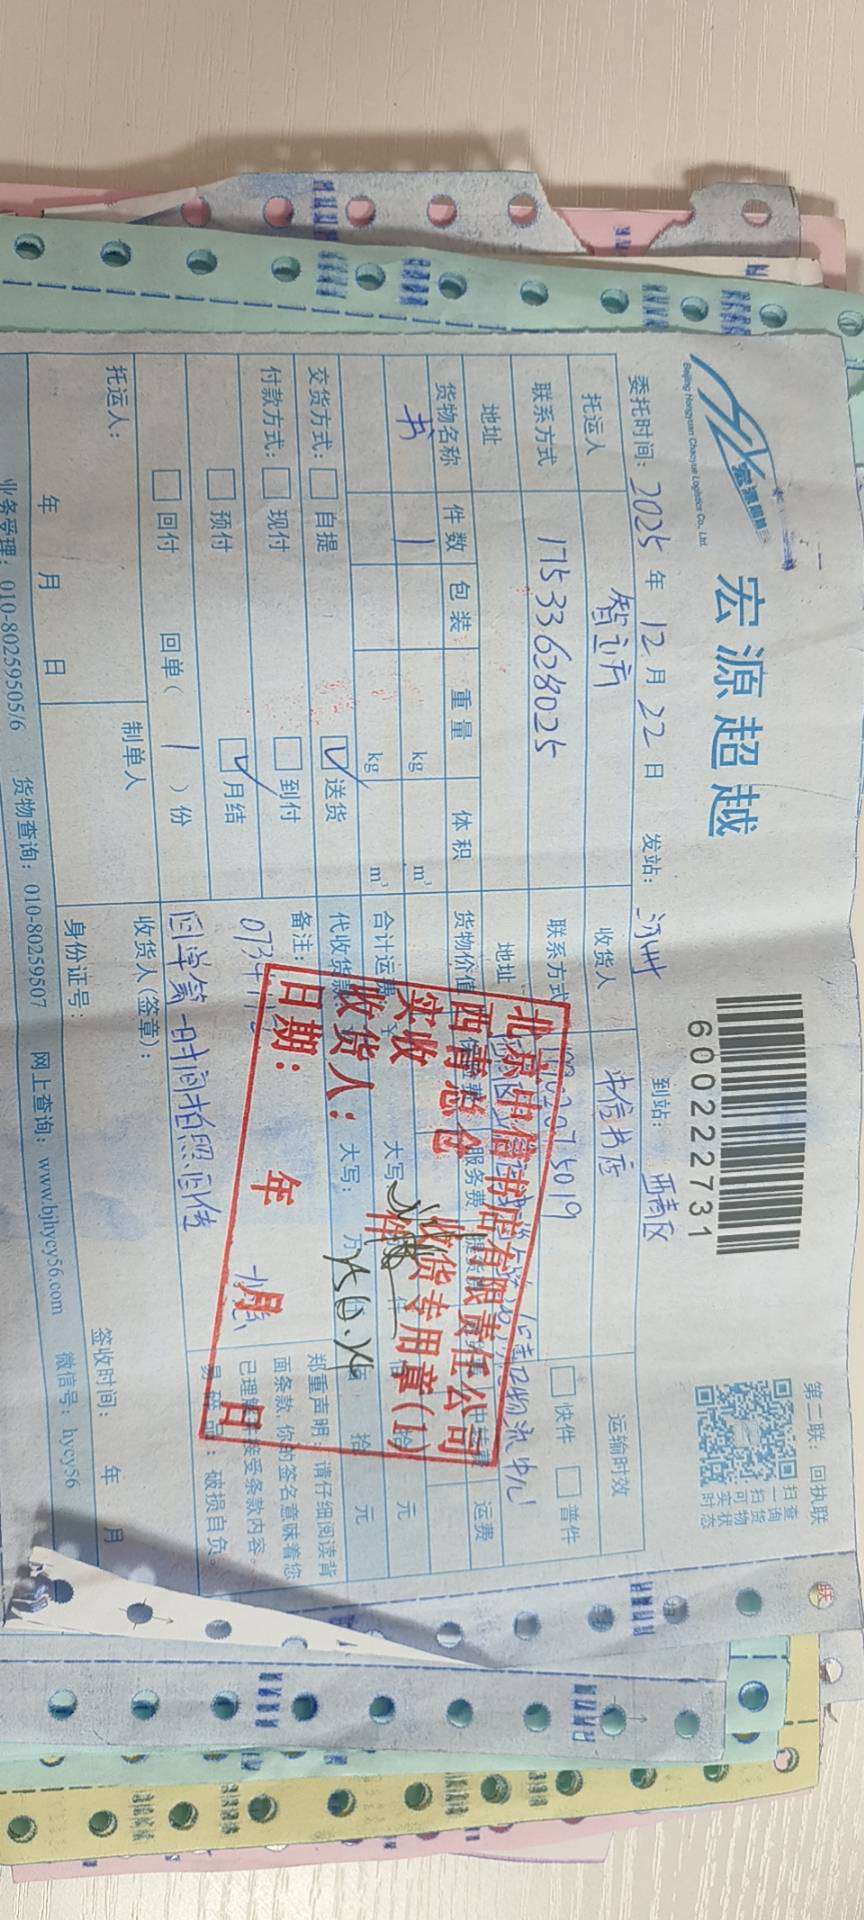 宏源超越
Beijing Hongyuan Chaoyue Logistics Co., Ltd
6000222731
第二联：回执联
扫一扫可实时
查询货物状态
委托时间：2025年12月22日 发站： 到站：西青区
托运人 智立方 收货人 中信书店 运输时效
联系方式 17533628025 联系方式 快件 普件
地址 地址
货物名称 件数 包装 重量 体积 货物价值 保费 服务费 运费
书 1 kg m³
kg m³ 合计运费 大写 拾 元
交货方式： 自提 送货 代收货款 大写： 万 拾 元
付款方式： 现付 到付 备注：
预付 月结 回单第一时间拍照回传
回付 回单（1）份
郑重声明：请仔细阅读背
面条款，你的签名意味着您
已理解并接受条款内容。
易碎品：破损自负。
托运人： 制单人 收货人（签章）：
年 月 日 身份证号： 签收时间： 年 月
业务受理：010-80259505/6 货物查询：010-80259507 网上查询：www.bjhycy56.com 微信号：hycy56
北京中信书店有限责任公司
西青总仓 收货专用章(1)
实收 件
收货人：
日期： 年 月 日